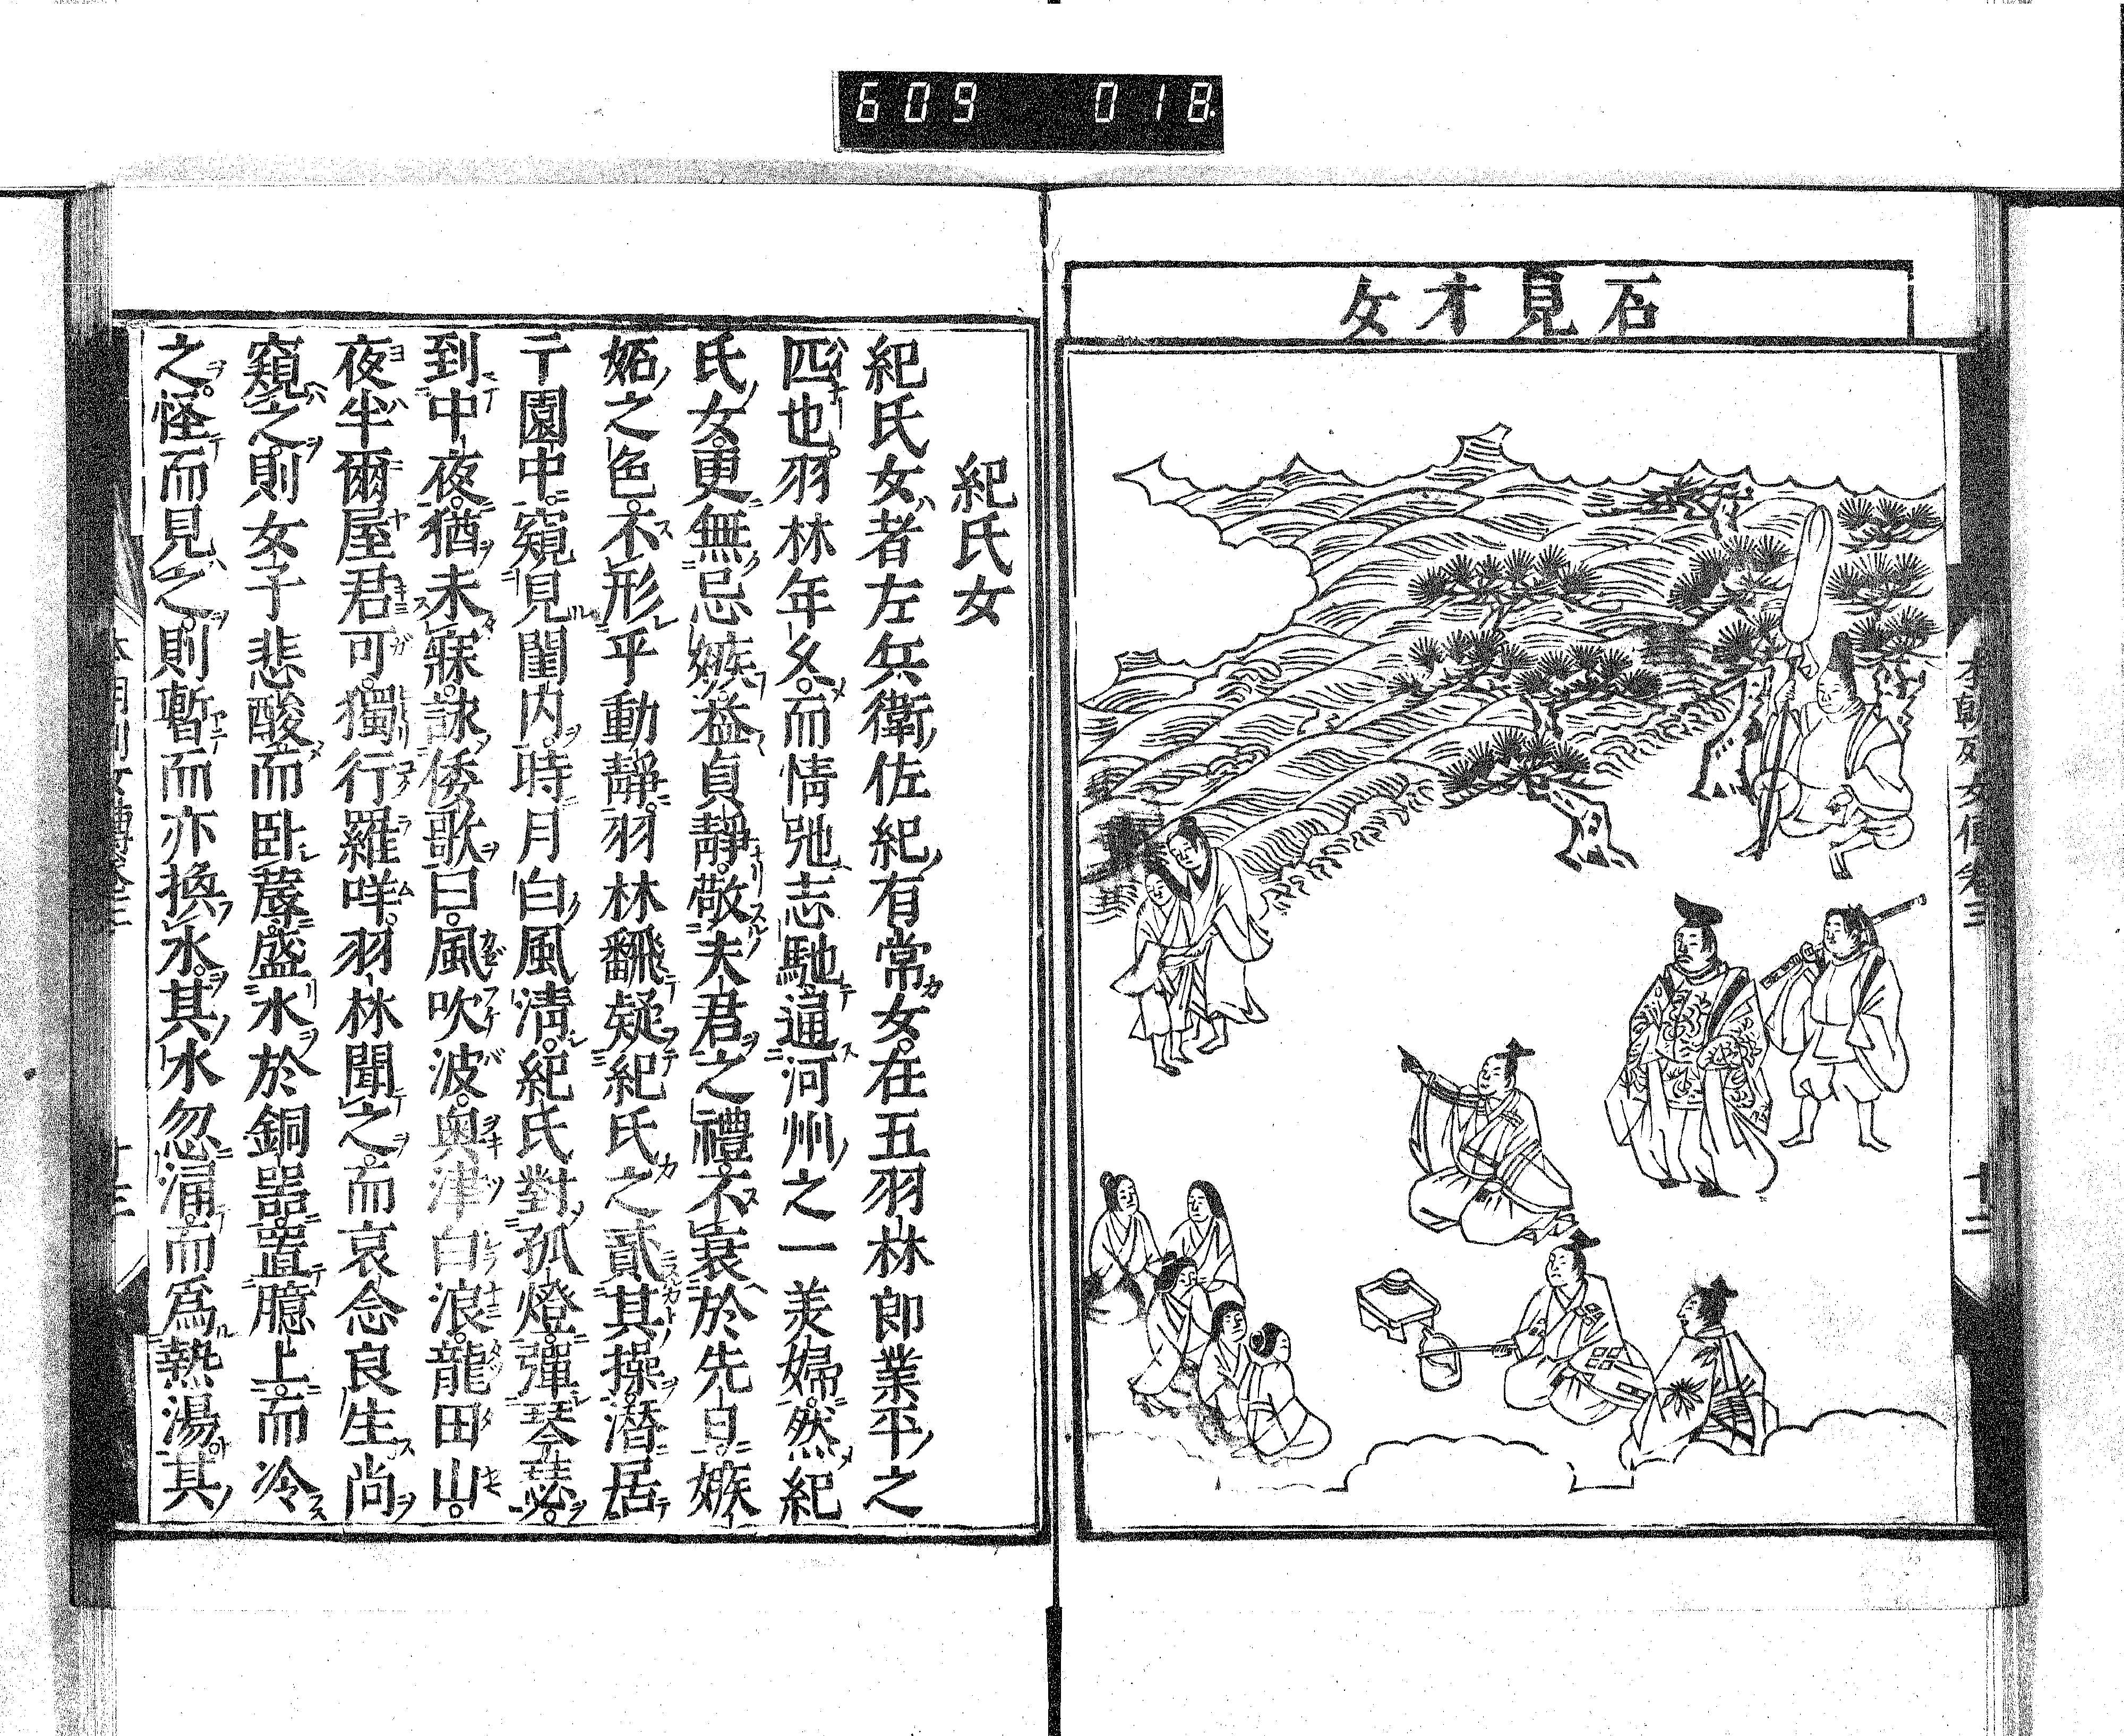 609 018
石見才女
本朝列女傳卷三
十二
紀氏女
紀氏女者左兵衛佐紀有常女在五羽林郎業平之
匹也。羽林年久。而情弛志馳。通河州之一美婦。然紀
氏女。更無忌嫉。益貞靜。敬夫君之禮。不衰於先日。嫉
妬之色。不形乎動靜。羽林飜疑紀氏之貳其操。潛居
于園中。窺見閨内。時月白風清。紀氏對孤燈。彈琴瑟。
到中夜。猶未寐。詠倭歌曰。風吹波。奥津白浪。龍田山。
夜半爾屋君可。獨行羅咩。羽林聞之。而哀念良生。尚
窺之。則女子悲酸而臥蓐。盛水於銅器。置臆上。而冷
之。怪而見之。則暫而亦換水。其水忽涌而爲熱湯其